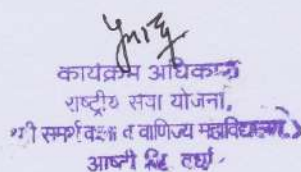 कार्यक्रम अधिकारी
राष्ट्रीय सेवा योजना,
श्री समर्थ कला व वाणिज्य महाविद्यालय,
आष्टी जि. वर्धा.